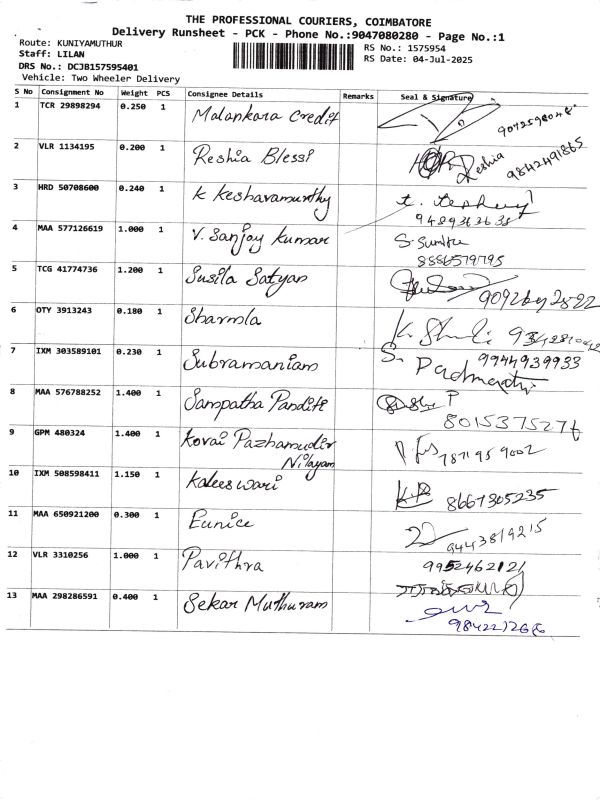 THE PROFESSIONAL COURIERS, COIMBATORE
Delivery Runsheet - PCK - Phone No.:9047080280 - Page No.:1
Route: KUNIYAMUTHUR
Staff: LILAN
DRS No.: DCJB157595401
Vehicle: Two Wheeler Delivery
RS No.: 1575954
RS Date: 04-Jul-2025
S No Consignment No Weight PCS Consignee Details Remarks Seal & Signature
1 TCR 29898294 0.250 1 Malankara Credit
2 VLR 1134195 0.200 1 Reshia Blessi Reshia 9842491865
3 HRD 50708600 0.240 1 K Kesharamurthy
4 MAA 577126619 1.000 1 V. Sanjay Kumar S. Sumitra
8886579795
5 TCG 41774736 1.200 1 Susila Satyan
6 OTY 3913243 0.180 1 Sharmla
7 IXM 303589101 0.230 1 Subramaniam S. Padmavathi 9944939933
8 MAA 576788252 1.400 1 Sampatha Panditi
9 GPM 480324 1.400 1 Kovai Pazhamudir
Nilayam
10 IXM 508598411 1.150 1 Kaleeswari 8667305235
11 MAA 650921200 0.300 1 Eunice 9443819215
12 VLR 3310256 1.000 1 Pavithra 9952462121
13 MAA 298286591 0.400 1 Sekar Muthuram